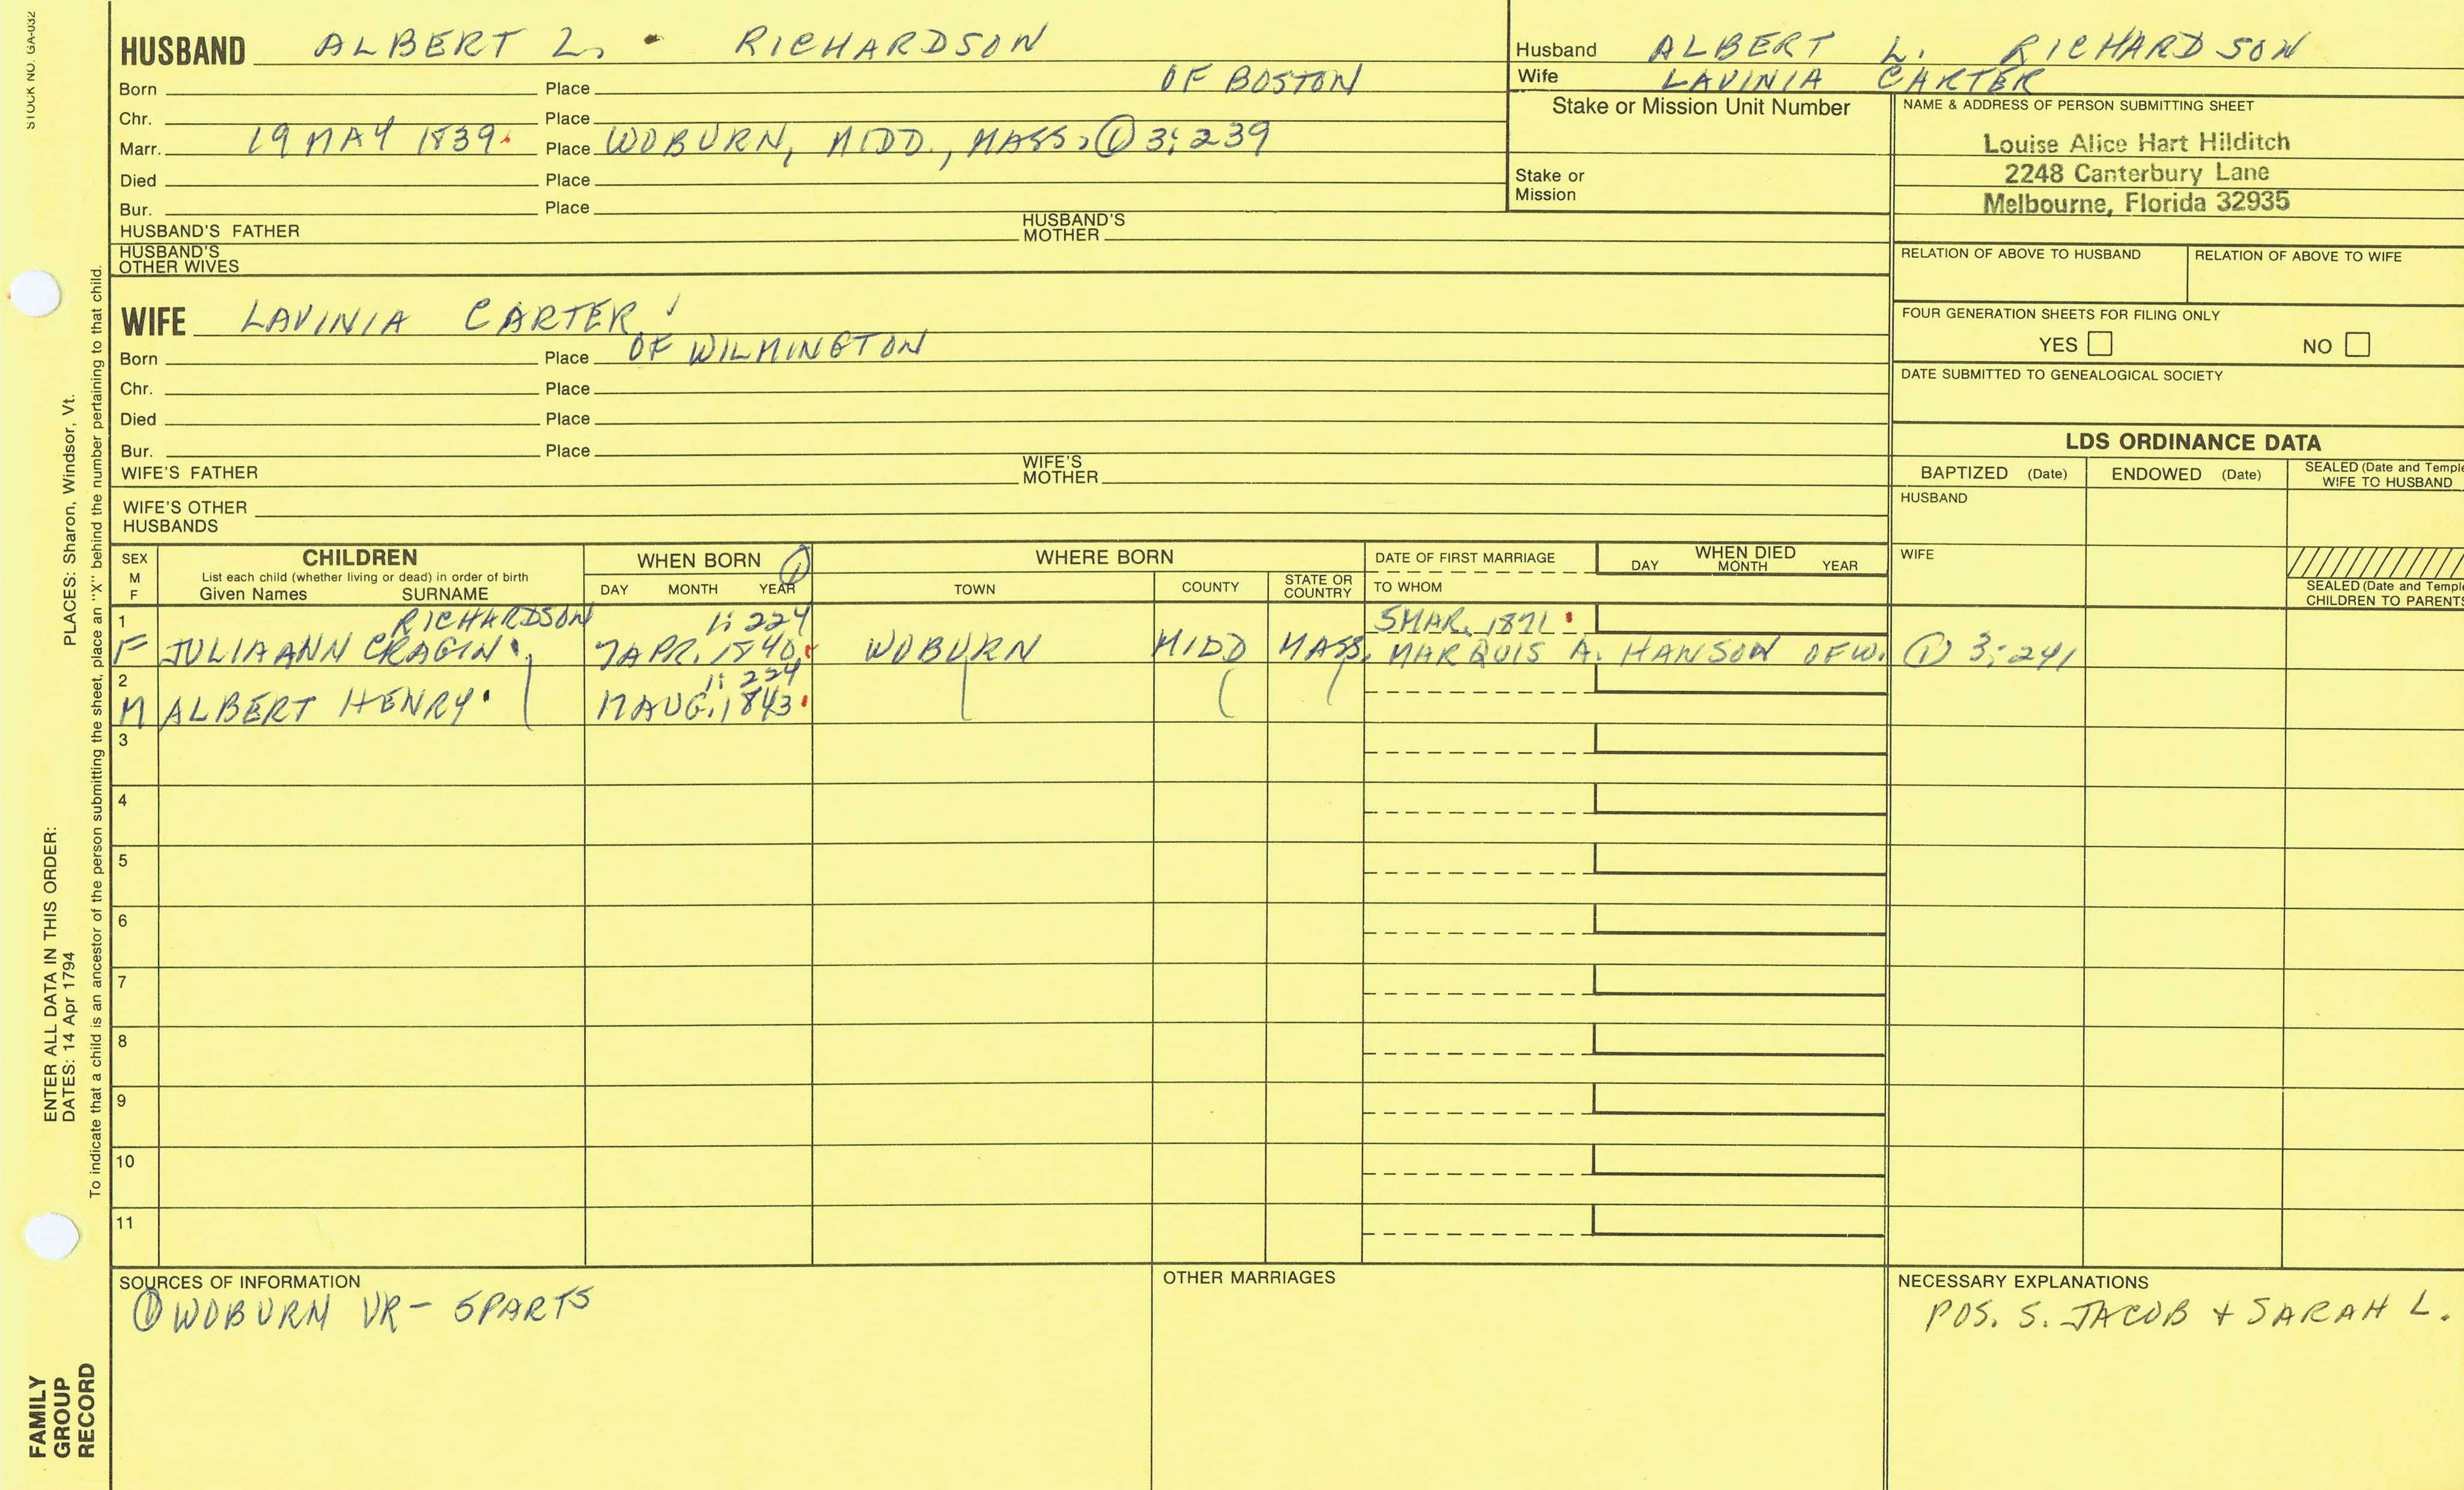 STOCK NO. GA-032
HUSBAND ALBERT L. RICHARDSON
OF BOSTON
Born Place
Chr. Place
Marr. 19 MAY 1839. Place WOBURN, MIDD., MASS, ① 3:239
Died Place
Bur. Place
HUSBAND'S FATHER HUSBAND'S MOTHER
HUSBAND'S OTHER WIVES
Husband ALBERT L. RICHARDSON
Wife LAVINIA CARTER
Stake or Mission Unit Number
Stake or Mission
NAME & ADDRESS OF PERSON SUBMITTING SHEET
Louise Alice Hart Hilditch
2248 Canterbury Lane
Melbourne, Florida 32935
RELATION OF ABOVE TO HUSBAND RELATION OF ABOVE TO WIFE
FOUR GENERATION SHEETS FOR FILING ONLY
YES NO
DATE SUBMITTED TO GENEALOGICAL SOCIETY
WIFE LAVINIA CARTER
Born Place OF WILMINGTON
Chr. Place
Died Place
Bur. Place
WIFE'S FATHER WIFE'S MOTHER
WIFE'S OTHER HUSBANDS
LDS ORDINANCE DATA
BAPTIZED (Date) ENDOWED (Date) SEALED (Date and Temple
WIFE TO HUSBAND
HUSBAND
WIFE
SEALED (Date and Temple
CHILDREN TO PARENTS
SEX M F
CHILDREN
List each child (whether living or dead) in order of birth
Given Names SURNAME
WHEN BORN ①
DAY MONTH YEAR
WHERE BORN
TOWN COUNTY STATE OR COUNTRY
DATE OF FIRST MARRIAGE
TO WHOM
WHEN DIED
DAY MONTH YEAR
1 RICHARDSON 1:224 5 MAR. 1871
F JULIA ANN CRAGIN. 7 APR. 1840 WOBURN MIDD MASS. MARQUIS A. HANSON OF W. ① 3:241
2 1:224
M ALBERT HENRY. 17 AUG. 1843
3
4
5
6
7
8
9
10
11
SOURCES OF INFORMATION
① WOBURN VR- 5PARTS
OTHER MARRIAGES
NECESSARY EXPLANATIONS
POS. S. JACOB + SARAH L.
ENTER ALL DATA IN THIS ORDER:
DATES: 14 Apr 1794 PLACES: Sharon, Windsor, Vt.
To indicate that a child is an ancestor of the person submitting the sheet, place an "X" behind the number pertaining to that child.
FAMILY
GROUP
RECORD